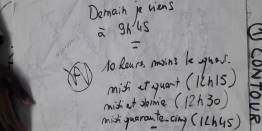 Demain je viens
à 9h45
(A) 10 heures moins le quart.
midi et quart (12h15)
midi et demie (12h30)
midi quarante-cinq (12h45)
① CONTOUR